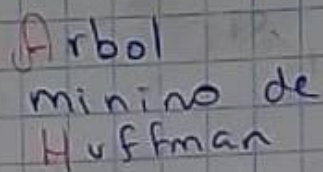 Arbol
minino de
Huffman